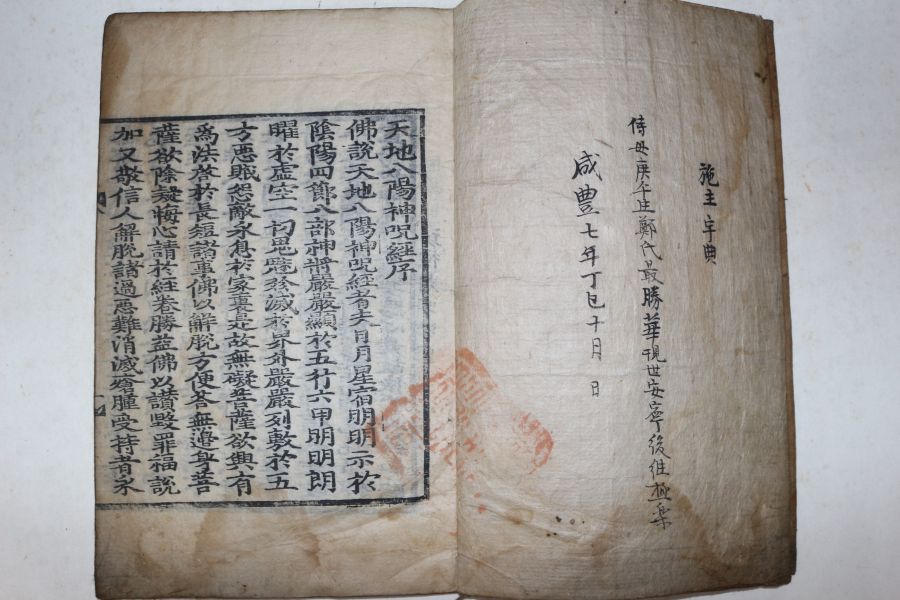 施主 宇典
侍母庚午生鄭氏最勝華現世安寧後往極樂
咸豊七年丁巳十月 日
天地八陽神呪經序
佛說天地八陽神呪經者夫日月星宿明明示於
陰陽四節八部神將嚴嚴顯於五行六甲明明朗
曜於虛空一切毘 殄滅於界外嚴嚴列敷於五
方惡賊怨敵永息於家裏是故無礙菩薩欲興有
爲法 於長短諸事佛以解脫方便答無邊身菩
薩欲除疑悔心請於經卷勝益佛以讃毀罪福說
加又敬信人解脫諸過惡難消滅 腫受持者永